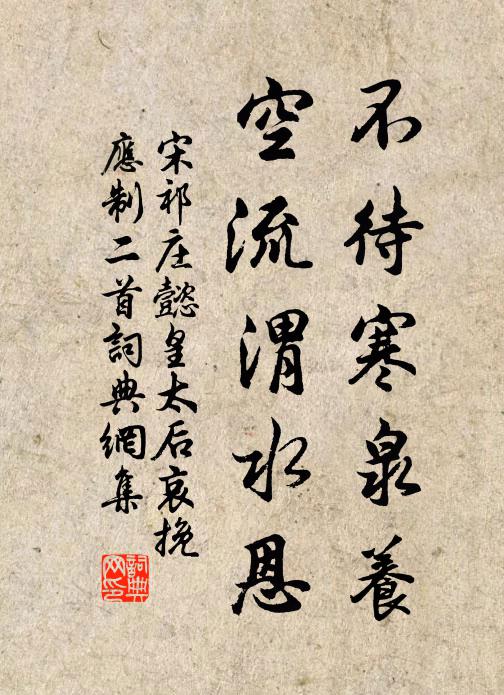 不待寒泉養
空流渭水恩
宋祁庄懿皇太后哀挽
應制二首詞典網集
詞典網印